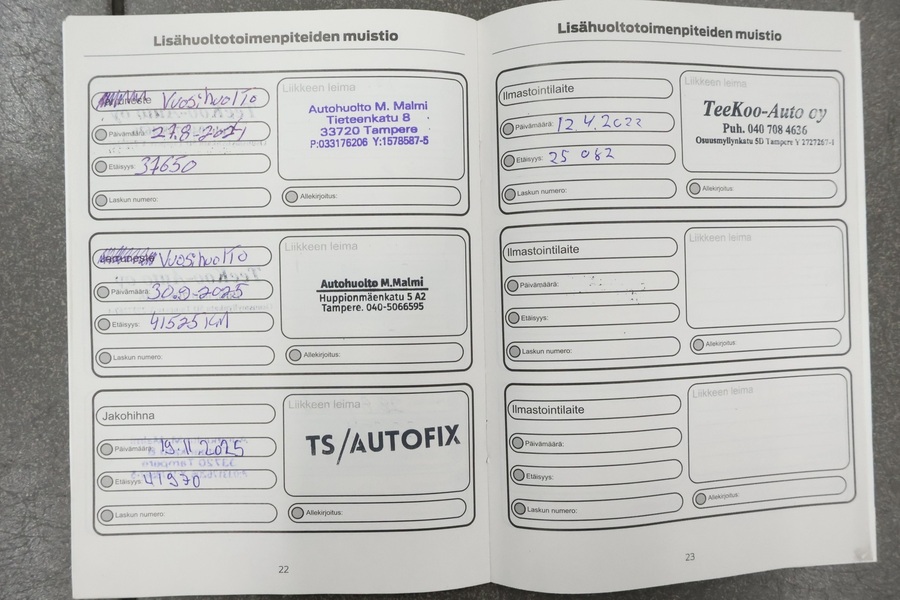 Lisähuoltotoimenpiteiden muistio
Vuosihuolto
Päivämäärä: 27.8-2021
Etäisyys: 37650
Laskun numero:
Liikkeen leima
Autohuolto M. Malmi
Tieteenkatu 8
33720 Tampere
P:033176206 Y:1578587-5
Allekirjoitus:
Vuosihuolto
Päivämäärä: 30.9-2025
Etäisyys: 41525 KM
Laskun numero:
Liikkeen leima
Autohuolto M.Malmi
Huppionmäenkatu 5 A2
Tampere. 040-5066595
Allekirjoitus:
Jakohihna
Päivämäärä: 19.11.2025
Etäisyys: 41970
Laskun numero:
Liikkeen leima
TS/AUTOFIX
Allekirjoitus:
22
Lisähuoltotoimenpiteiden muistio
Ilmastointilaite
Päivämäärä: 12.4.2022
Etäisyys: 25 082
Laskun numero:
Liikkeen leima
TeeKoo-Auto oy
Puh. 040 708 4636
Osuusmyllynkatu 5D Tampere Y 1727267-1
Allekirjoitus:
Ilmastointilaite
Päivämäärä:
Etäisyys:
Laskun numero:
Liikkeen leima
Allekirjoitus:
Ilmastointilaite
Päivämäärä:
Etäisyys:
Laskun numero:
Liikkeen leima
Allekirjoitus:
23